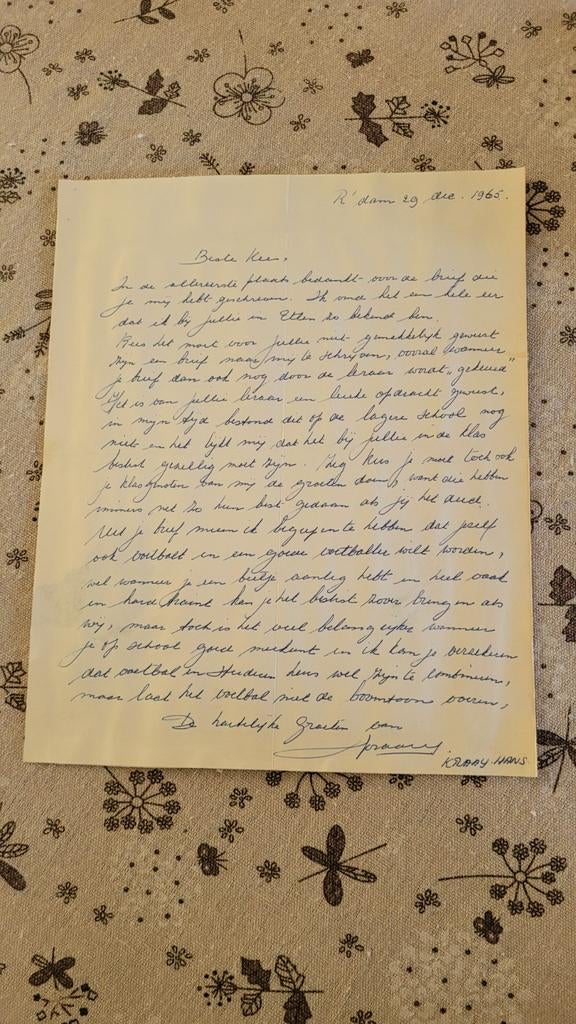 R'dam 29 dec. 1965.
Beste Kees,
In de allereerste plaats bedankt voor de brief die
je mij hebt geschreven. Ik vind het een hele eer
dat ik bij jullie in Etten zo bekend ben.
Kees het moet voor jullie niet gemakkelijk geweest
zijn een brief naar mij te schrijven, vooral wanneer
je brief dan ook nog door de leraar wordt „gekeurd"
Het is van jullie leraar een leuke opdracht geweest,
in mijn tijd bestond dit op de lagere school nog
niet en het lijkt mij dat het bij jullie in de klas
best gezellig moet zijn. Zeg Kees je moet toch ook
je klasgenoten van mij de groeten doen, want die hebben
immers net zo hun best gedaan als jij het deed.
Uit je brief meen ik begrepen te hebben dat jezelf
ook voetbalt en een goede voetballer wilt worden,
wel wanneer je een beetje aanleg hebt en heel vaak
en hard traint kan je het best zover brengen als
wij, maar toch is het veel belangrijker wanneer
je op school goed meekunt en ik kan je verzekeren
dat voetbal en studeren heus wel zijn te combineren,
maar laat het voetbal niet de boventoon voeren,
De hartelijke groeten van
KRAAY-HANS